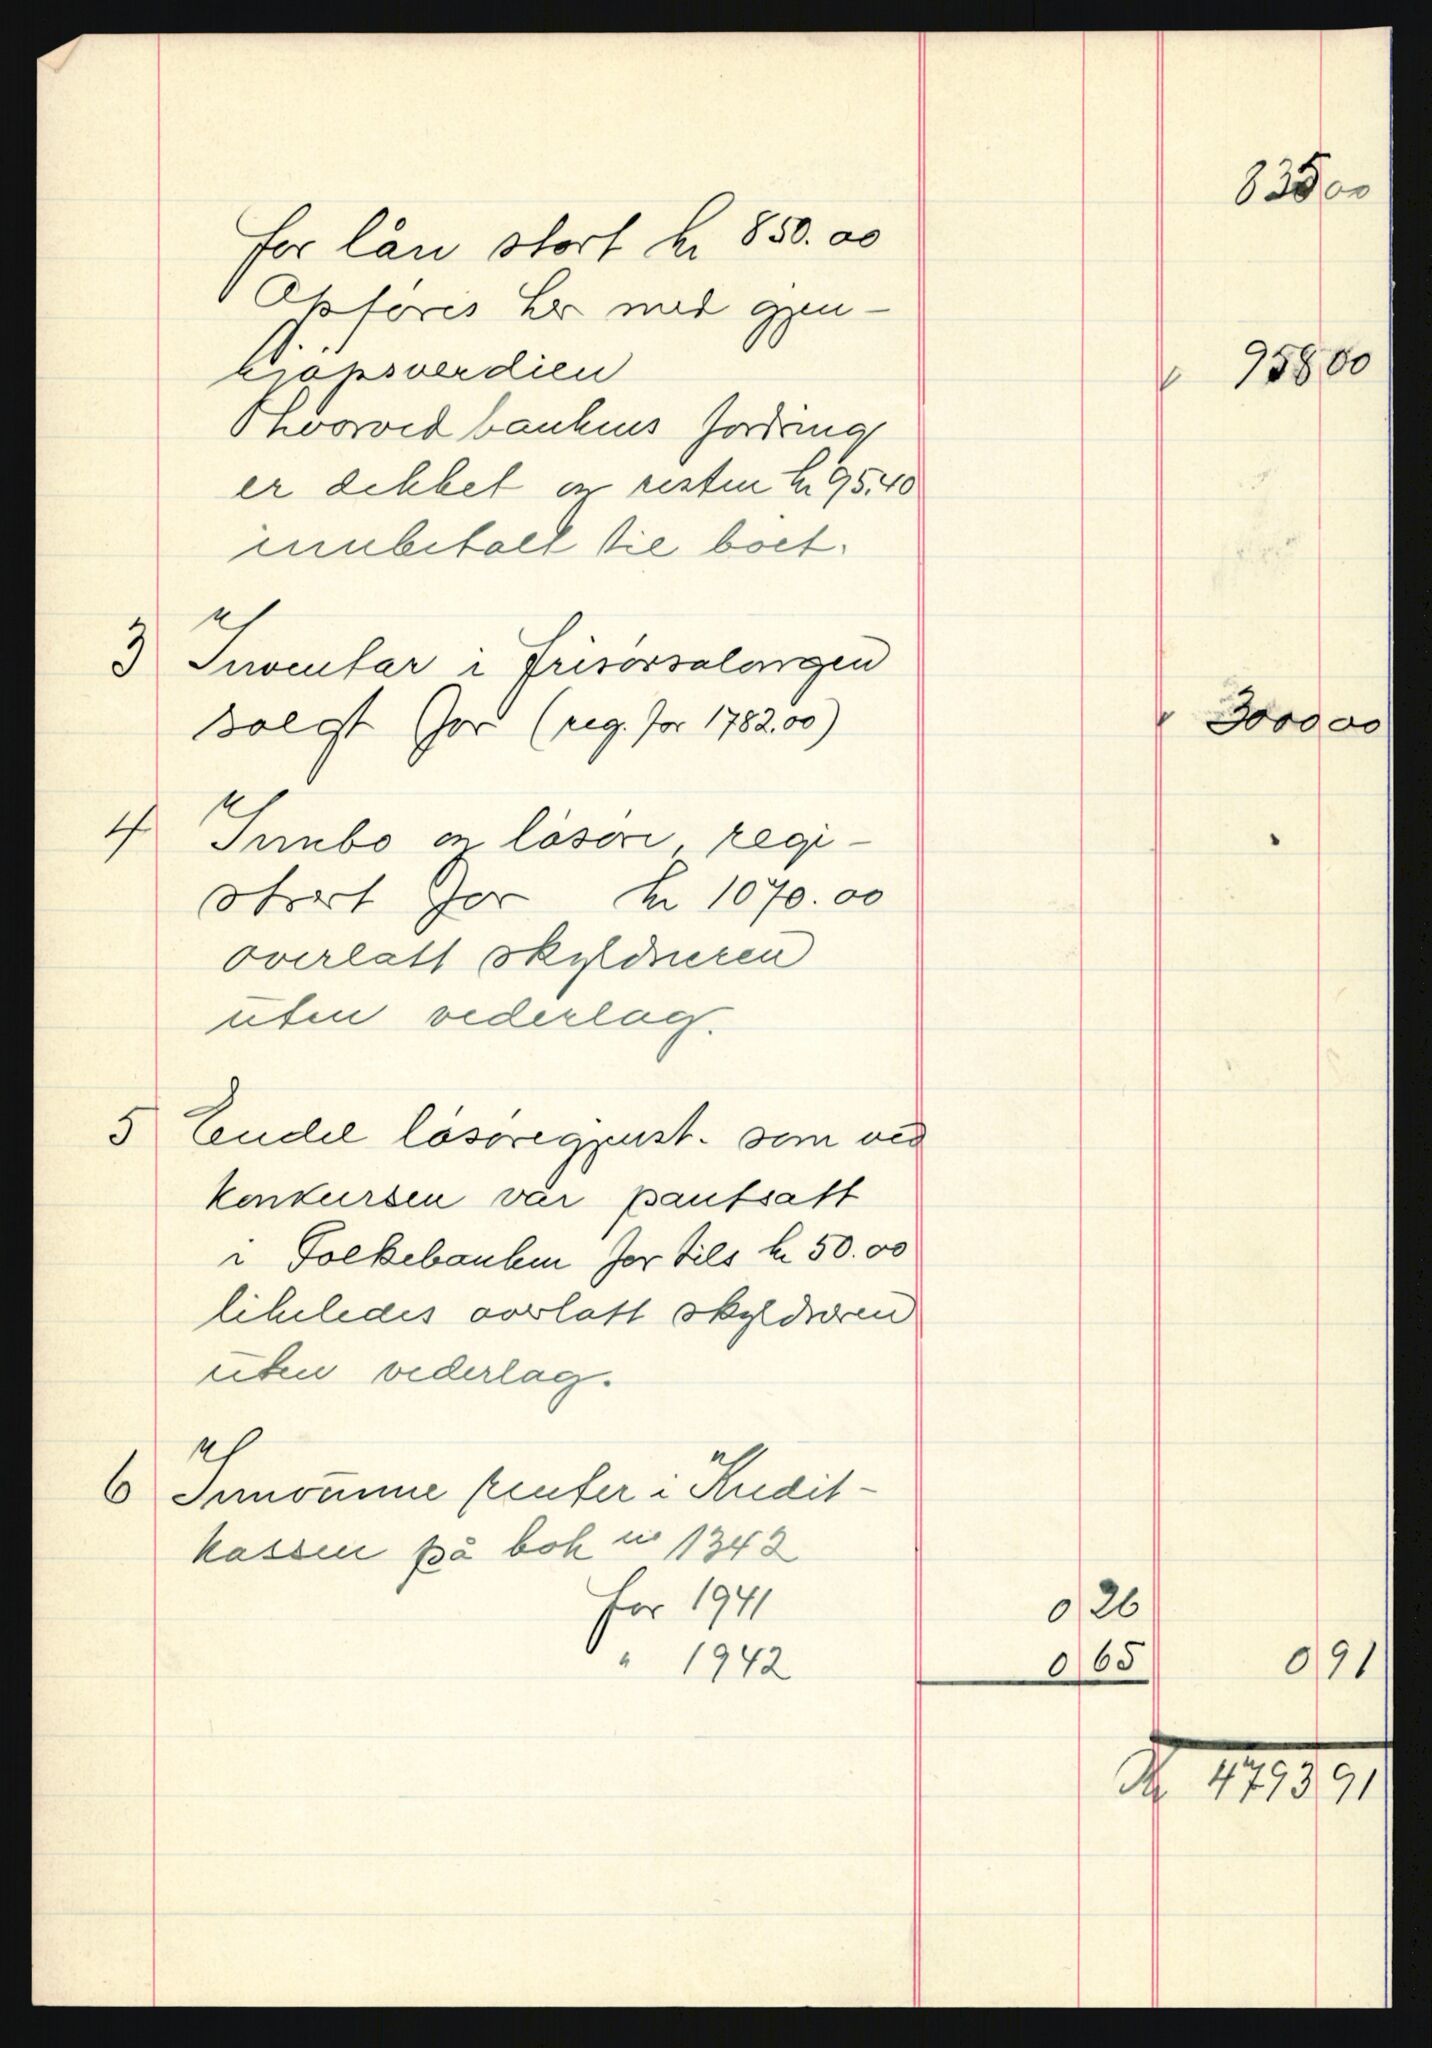 835 00
for lån stort kr 850.00
Opføres her med gjen-
kjøpsverdien " 958 00
hvorved bankens fordring
er dekket og resten kr 95.40
innbetalt til boet.
3 Inventar i frisørsalongen
solgt for (reg. for 1782.00) " 3000 00
4 Innbo og løsøre, regi-
strert for kr 1070.00
overlatt skyldneren
uten vederlag.
5 Endel løsøregjenst. som ved
konkursen var pantsatt
i Folkebanken for tils kr 50.00
likeledes overlatt skyldneren
uten vederlag.
6 Innvunne renter i Kredit-
kassen på bok nr 1342
for 1941 0 26
" 1942 0 65 0 91
Kr 4793 91